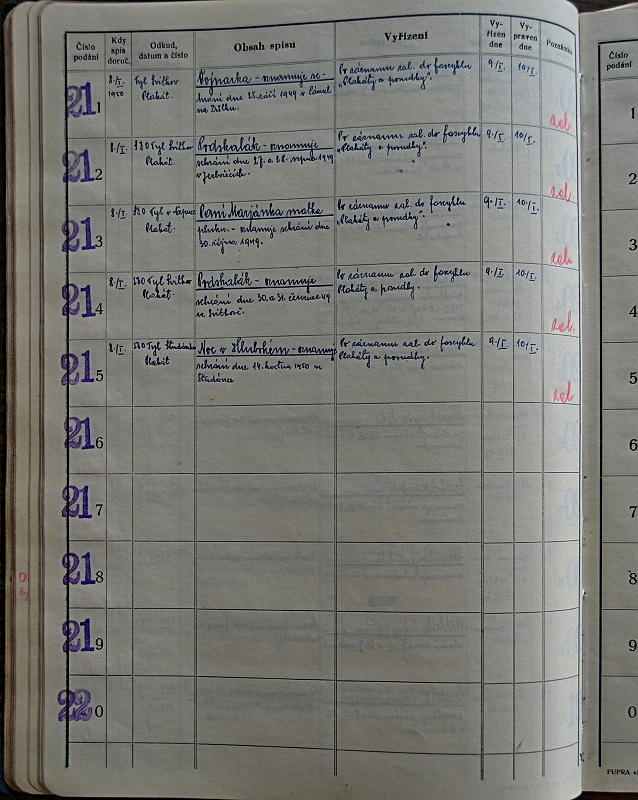 Číslo podání
Kdy spis doruč.
Odkud, datum a číslo
Obsah spisu
Vyřízení
Vyřízen dne
Vypraven dne
Poznámka
211
8./I. 1950
Tyl Svitkov
Plakát.
Vojnarka - oznamuje se-
hrání dne 25. září 1949 v
na Zvítku.
Po záznamu zal. do fascyklu
„Plakáty a pozvdky".
9./I.
10./I.
zal.
212
8./I.
SDO Tyl Svitkov
Plakát.
Podskalák - oznamuje
sehrání dne 27. a 28. srpna 1949
Po záznamu zal. do fascyklu
„Plakáty a pozvdky".
9./I.
10./I.
zal.
213
8./I.
Tyl v
Plakát.
Paní Marjánka matka
pluku. - oznamuje sehrání dne
30. října 1949.
Po záznamu zal. do fascyklu
„Plakáty a pozvdky".
9./I.
10./I.
zal.
214
8./I.
SDO Tyl Svitkov
Plakát.
Podskalák - oznamuje
sehrání dne 30. a 31. července 49
Po záznamu zal. do fascyklu
Plakáty a pozvdky.
9./I.
10./I.
zal.
215
8./I.
SDO Tyl Studánka
Plakát
Noc v Hlubokém - oznamuje
sehrání dne 14. května 1950 v
Studánce
Po záznamu zal. do fascyklu
Plakáty a pozvdky.
9./I.
10./I.
zal
216
217
218
219
220
Číslo podání
1
2
3
4
5
6
7
8
9
0
FUPRA